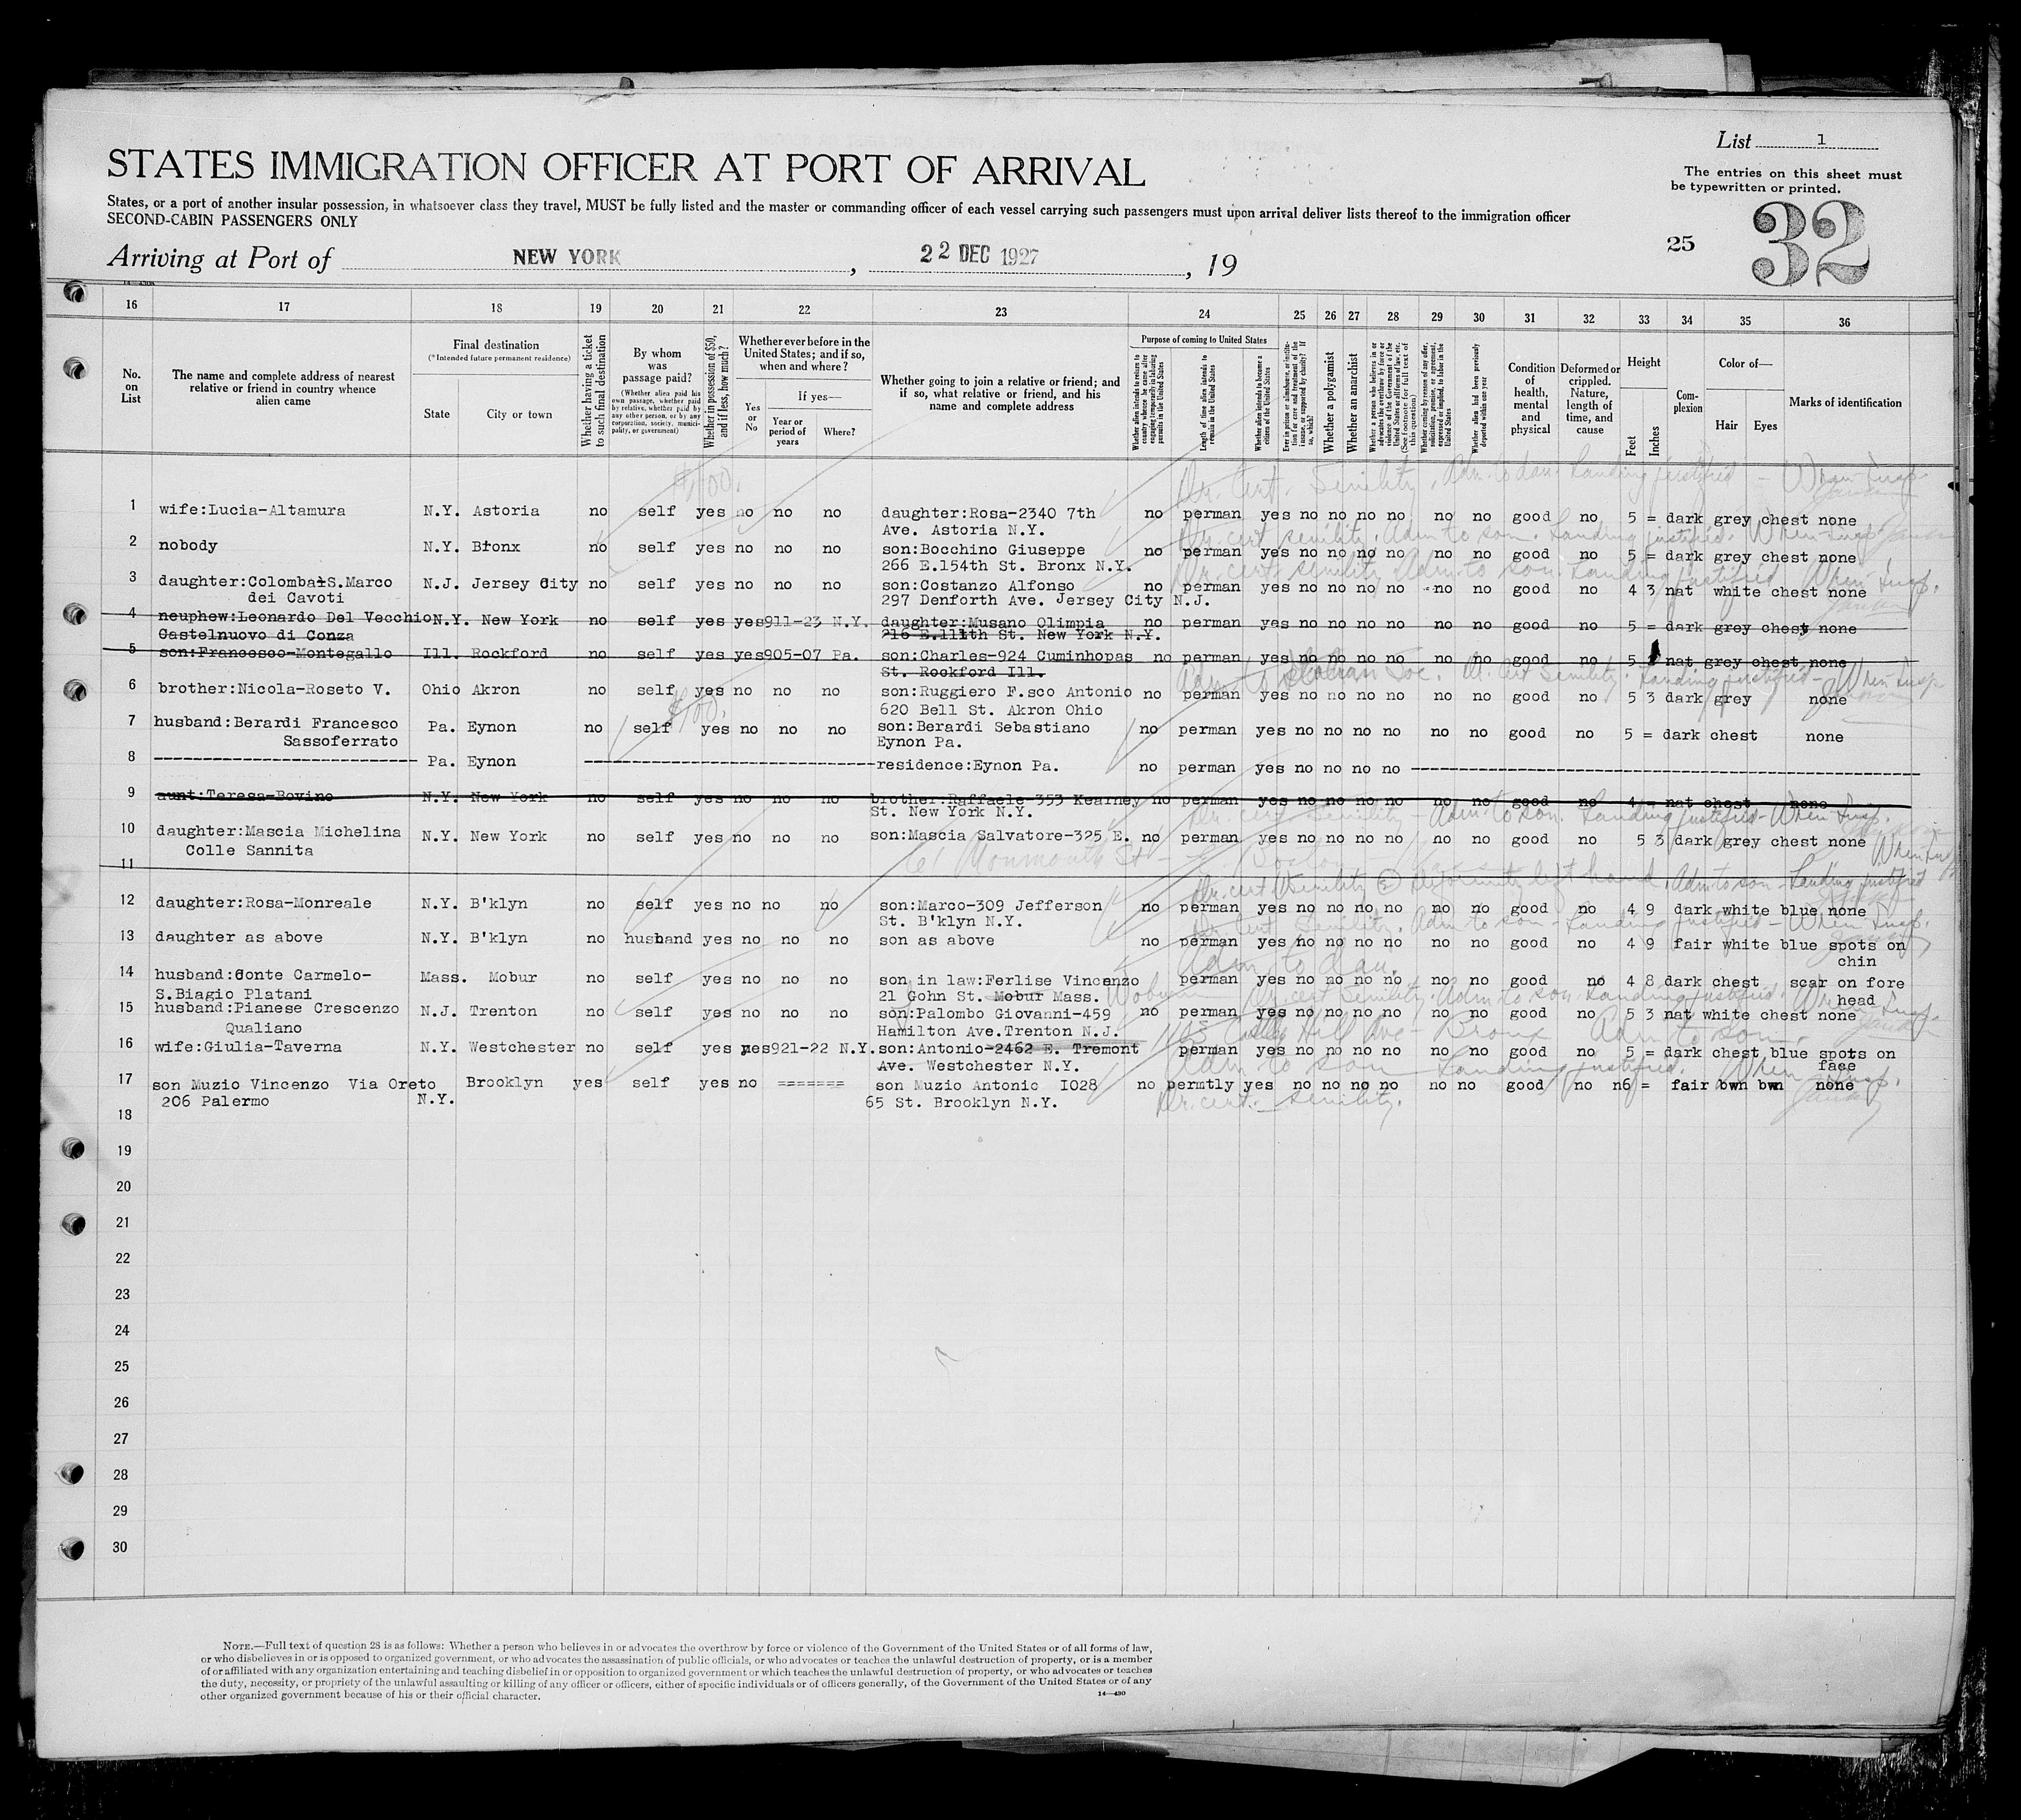 List 1
STATES IMMIGRATION OFFICER AT PORT OF ARRIVAL
The entries on this sheet must
be typewritten or printed.
States, or a port of another insular possession, in whatsoever class they travel, MUST be fully listed and the master or commanding officer of each vessel carrying such passengers must upon arrival deliver lists thereof to the immigration officer
SECOND-CABIN PASSENGERS ONLY
25 32
Arriving at Port of NEW YORK, 22 DEC 1927, 19
16 17 18 19 20 21 22 23 24 25 26 27 28 29 30 31 32 33 34 35 36
No. on List
The name and complete address of nearest relative or friend in country whence alien came
Final destination
(*Intended future permanent residence)
State
City or town
Whether having a ticket to such final destination
By whom was passage paid?
(Whether alien paid his own passage, whether paid by relative, whether paid by any other person, or by any corporation, society, municipality, or government)
Whether in possession of $50, and if less, how much?
Whether ever before in the United States; and if so, when and where?
Yes or No
If yes—
Year or period of years
Where?
Whether going to join a relative or friend; and if so, what relative or friend, and his name and complete address
Purpose of coming to United States
Whether alien intends to return to country whence he came after engaging temporarily in laboring pursuits in the United States
Length of time alien intends to remain in the United States
Whether alien intends to become a citizen of the United States
Ever in prison or almshouse, or institution for care and treatment of the insane, or supported by charity? If so, which?
Whether a polygamist
Whether an anarchist
Whether a person who believes in or advocates the overthrow by force or violence of the Government of the United States or all forms of law, etc. (See footnote for full text of this question)
Whether coming by reason of any offer, solicitation, promise, or agreement, expressed or implied, to labor in the United States
Whether alien had been previously deported within one year
Condition of health, mental and physical
Deformed or crippled. Nature, length of time, and cause
Height
Feet
Inches
Complexion
Color of—
Hair
Eyes
Marks of identification
$100.
Dr. Cert. Senility. Adm. to dau. Landing justified - When Insp.
1 wife:Lucia-Altamura N.Y. Astoria no self yes no no no daughter:Rosa-2340 7th no perman yes no no no no no no good no 5 = dark grey chest none
Ave. Astoria N.Y.
Dr. cert senility. Adm. to son. Landing justified. When Insp.
2 nobody N.Y. Bronx no self yes no no no son:Bocchino Giuseppe no perman yes no no no no no no good no 5 = dark grey chest none
266 E.154th St. Bronx N.Y.
Dr. cert. senility Adm. to son. Landing justified When Insp.
3 daughter:Colomba-S.Marco N.J. Jersey City no self yes no no no son:Costanzo Alfonso no perman yes no no no no no no good no 4 3 nat white chest none
dei Cavoti 297 Denforth Ave. Jersey City N.J.
4 neuphew:Leonardo Del Vecchio N.Y. New York no self yes yes 911-23 N.Y. daughter:Musano Olimpia no perman yes no no no no no no good no 5 = dark grey chest none
Castelnuovo di Conza 216 E.111th St. New York N.Y.
5 son:Francesco-Montegallo Ill. Rockford no self yes yes 905-07 Pa. son:Charles-924 Cuminhopas no perman yes no no no no no no good no 5 nat grey chest none
St. Rockford Ill.
Adm. Italian Soc. Dr. Cert Senility. Landing justified - When Insp
6 brother:Nicola-Roseto V. Ohio Akron no self yes no no no son:Ruggiero F.sco Antonio no perman yes no no no no no no good no 5 3 dark grey none
620 Bell St. Akron Ohio
$100.
7 husband:Berardi Francesco Pa. Eynon no self yes no no no son:Berardi Sebastiano no perman yes no no no no no no good no 5 = dark chest none
Sassoferrato Eynon Pa.
8 Pa. Eynon residence:Eynon Pa. no perman yes no no no no
9 aunt:Teresa-Bovino N.Y. New York no self yes no no no brother:Raffaele-353 Kearney no perman yes no no no no no no good no 4 = nat chest none
St. New York N.Y.
Dr. cert Senility - Adm. to son. Landing justified - When Insp.
10 daughter:Mascia Michelina N.Y. New York no self yes no no no son:Mascia Salvatore-325 E. no perman yes no no no no no no good no 5 3 dark grey chest none
Colle Sannita 61 Monmouth St - E. Boston - Mass
11
Dr. cert Senility (2) Deformity left hand. Adm to son - Landing justified When Insp
12 daughter:Rosa-Monreale N.Y. B'klyn no self yes no no no son:Marco-309 Jefferson no perman yes no no no no no no good no 4 9 dark white blue none
St. B'klyn N.Y.
Dr. Cert Senility. Adm to son - Landing justified - When Insp.
13 daughter as above N.Y. B'klyn no husband yes no no no son as above no perman yes no no no no no no good no 4 9 fair white blue spots on
chin
Adm to dau.
14 husband:Conte Carmelo- Mass. Mobur no self yes no no no son in law:Ferlise Vincenzo perman yes no no no no no no good no 4 8 dark chest scar on fore
S.Biagio Platani 21 Gohn St. Mobur Mass. Woburn head
Dr. cert Senility. Adm to son Landing justified. When Insp.
15 husband:Pianese Crescenzo N.J. Trenton no self yes no no no son:Palombo Giovanni-459 no perman yes no no no no no no good no 5 3 nat white chest none
Qualiano Hamilton Ave.Trenton N.J.
Hill Ave - Bronx Adm to son.
16 wife:Giulia-Taverna N.Y. Westchester no self yes yes 921-22 N.Y. son:Antonio-2462 E. Tremont perman yes no no no no no no good no 5 = dark chest blue spots on
Ave. Westchester N.Y. face
Adm to son Landing justified. When Insp.
17 son Muzio Vincenzo Via Oreto Brooklyn yes self yes no ======= son Muzio Antonic I028 no permtly yes no no no no no no good no no 6 = fair bwn bwn none
206 Palermo N.Y. 65 St. Brooklyn N.Y.
Dr. cert. senility.
18
19
20
21
22
23
24
25
26
27
28
29
30
NOTE.—Full text of question 28 is as follows: Whether a person who believes in or advocates the overthrow by force or violence of the Government of the United States or of all forms of law,
or who disbelieves in or is opposed to organized government, or who advocates the assassination of public officials, or who advocates or teaches the unlawful destruction of property, or is a member
of or affiliated with any organization entertaining and teaching disbelief in or opposition to organized government or which teaches the unlawful destruction of property, or who advocates or teaches
the duty, necessity, or propriety of the unlawful assaulting or killing of any officer or officers, either of specific individuals or of officers generally, of the Government of the United States or of any
other organized government because of his or their official character.
14—430